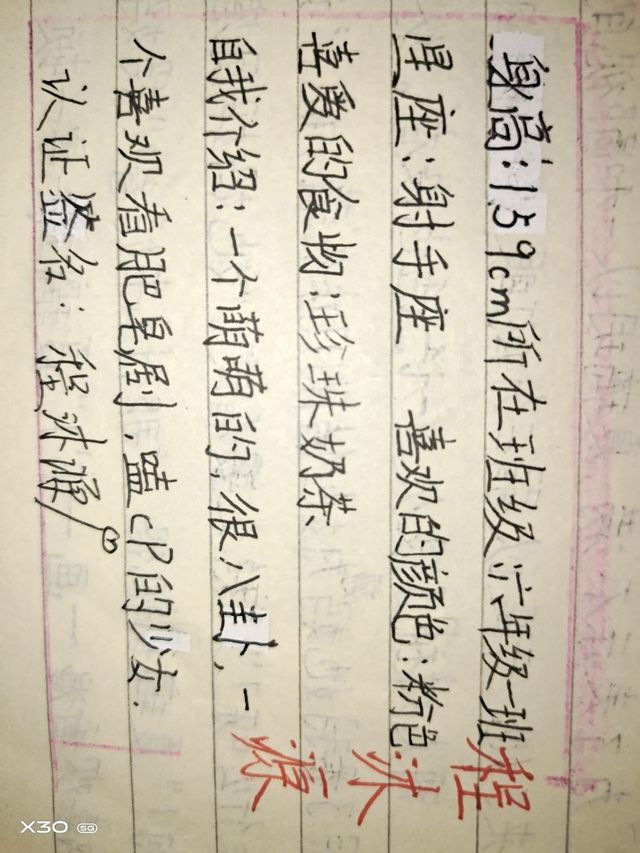 身高:159cm所在班级六年级一班
星座:射手座 喜欢的颜色:粉色
喜爱的食物:珍珠奶茶
自我介绍:一个萌萌的,很八卦,一
个喜观看肥皂剧,嗑cP的少女.
认证签名:程沐
程沐源
X30 5G